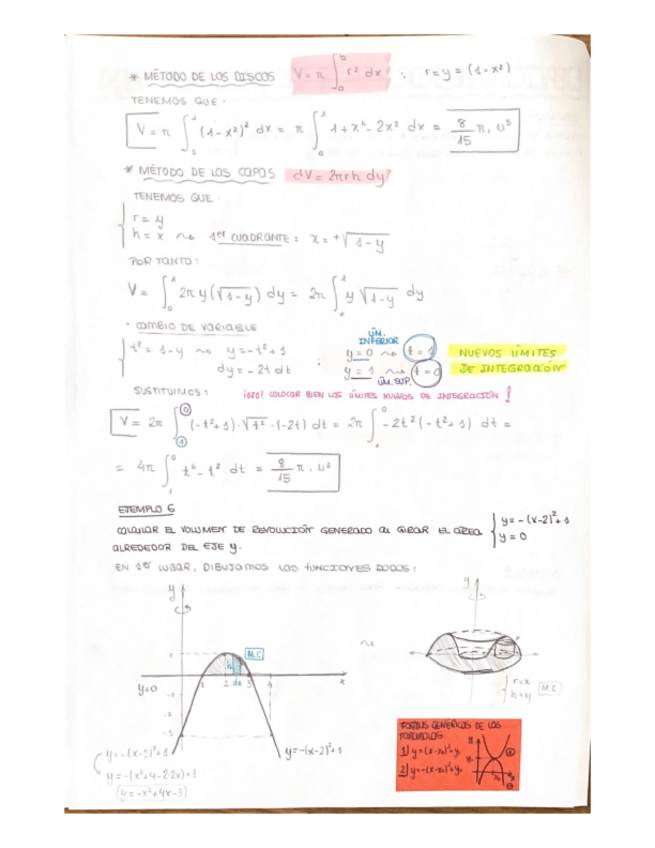 * MÉTODO DE LOS DISCOS V = π ∫ r² dx ; r = y = (1-x²)
TENEMOS QUE:
V = π ∫ (1-x²)² dx = π ∫ 1+x⁴-2x² dx = 8/15 π. u³
* MÉTODO DE LAS CAPAS dV = 2πrh dy
TENEMOS QUE
r = y
h = x ⤳ 1er CUADRANTE: x = +√1-y
POR TANTO:
V = ∫₀¹ 2πy(√1-y) dy = 2π ∫₀¹ y√1-y dy
· CAMBIO DE VARIABLE
LÍM. INFERIOR
t² = 1-y ⤳ y = -t²+1 ; y=0 ⤳ t=1 NUEVOS LÍMITES
dy = -2t dt y=1 ⤳ t=0 DE INTEGRACIÓN
LÍM. SUP.
SUSTITUIMOS: ¡OJO! COLOCAR BIEN LOS LÍMITES NUEVOS DE INTEGRACIÓN!
V = 2π ∫₁⁰ (-t²+1)·√t²·(-2t) dt = 2π ∫₁⁰ -2t²(-t²+1) dt =
= 4π ∫₁⁰ t⁴-t² dt = 8/15 π. u³
EJEMPLO 6
CALCULAR EL VOLUMEN DE REVOLUCIÓN GENERADO AL GIRAR EL ÁREA y = -(x-2)²+1
ALREDEDOR DEL EJE y. y = 0
EN 1er LUGAR, DIBUJAMOS LAS FUNCIONES DADAS:
y
y
1
M.C
h
y=0
1 2 dx 3 4 x
-1
-2
-3
r=x
h=y M.C
y=-(x-2)²+1
y=-(x-2)²+1
y=-(x²+4-2·2x)+1
y=-x²+4x-3
FORMAS GENÉRICAS DE LAS
PARÁBOLAS
1) y=(x-x₀)²+y₀
2) y=-(x-x₀)²+y₀